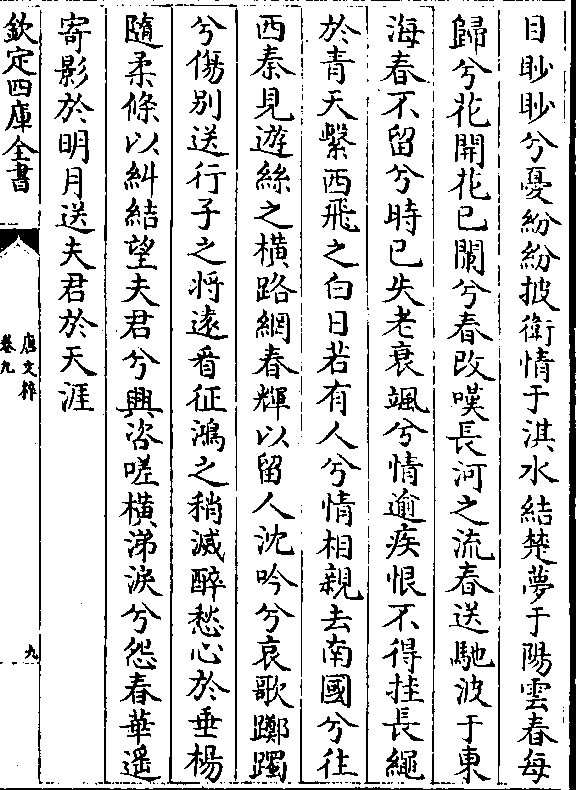 目眇眇兮憂紛紛披衛情于淇水結楚夢于陽雲春每
歸兮花開花已闌兮春改嘆長河之流春送馳波于東
海春不留兮時已失老衰颯兮情逾疾恨不得挂長繩
於青天繫西飛之白日若有人兮情相親去南國兮往
西秦見遊絲之橫路網春輝以留人沈吟兮哀歌躑躅
兮傷别送行子之将逺看征鴻之稍滅醉愁心於垂楊
隨柔條以糾結望夫君兮興咨嗟横涕淚兮怨春華遥
寄影於明月送夫君於天涯
欽定四庫全書
唐文粹
卷九
九